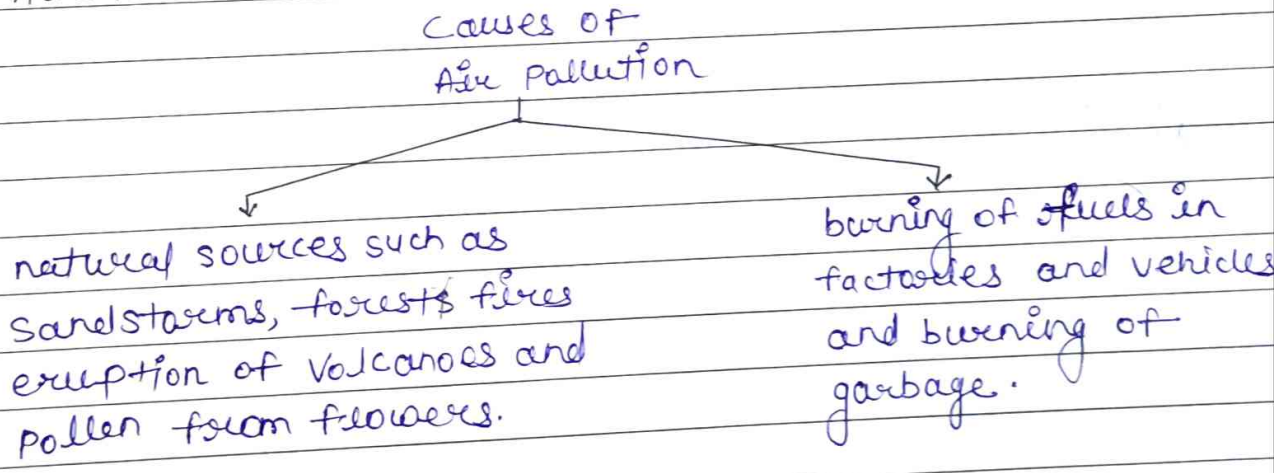 Causes of
Air Pallution
natural sources such as
Sandstorms, forests fires
eruption of Volcanoes and
Pollen from flowers.
burning of fuels in
factories and vehicles
and burning of
garbage.